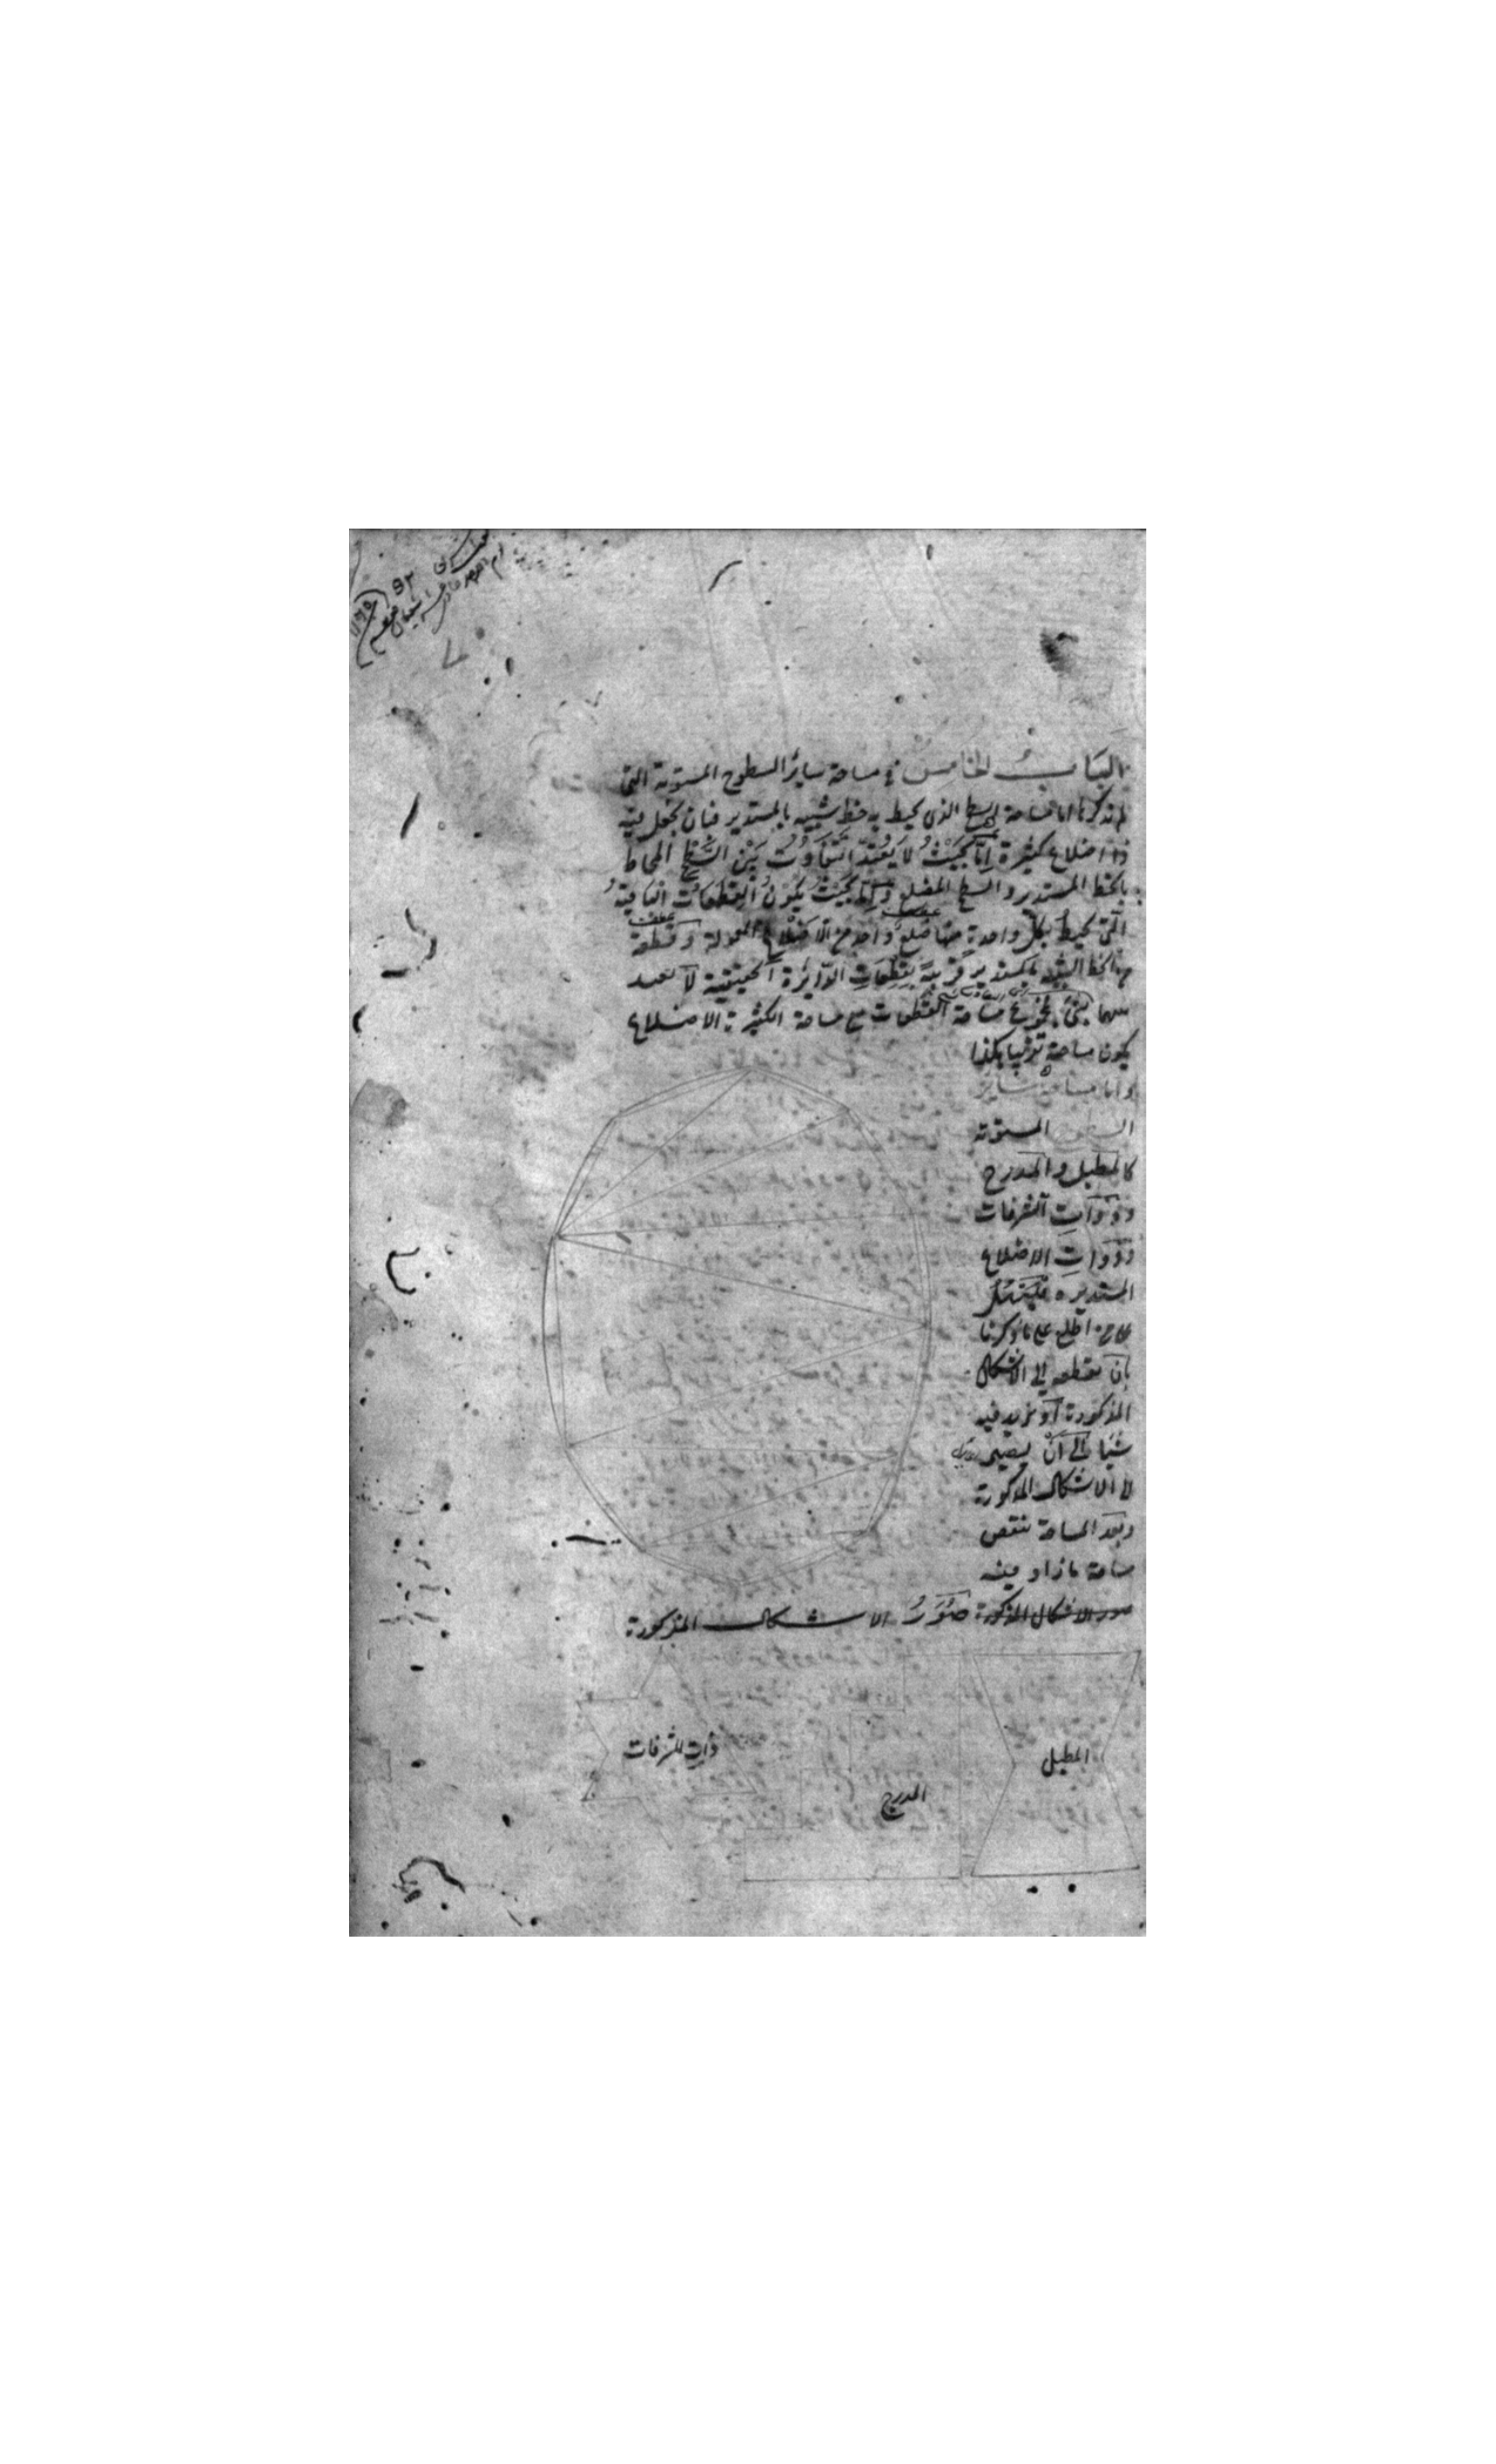 الباب الخامس في مساحة سائر السطوح المستوية التي
لم نذكرها اما مساحة السطح الذي يحيط به خط شبيه بالمستدير فبان نجعل فيه
ذا اضلاع كثيرة اِمّا بحَيْثُ لا يُعْتَدّ التَفَاوُتُ بَيْن السَّطح المحاط
بالخط المستدير والسطح المضلع وَاِمّا بحَيثُ يكُونُ القِطعَاتُ الباقِيَةُ
التي يحيط بكلّ واحدةٍ منها ضلعٌ واحد من الاَضْلاع المعمولة وقطعة
من الخط الشبيه بالمستدير قريبةً بقِطْعاتِ الدّائِرة الحقيقية لا تعد
بينهما بشئ فمجموع مساحة القطعات مع مساحة الكثيرة الاضلاع
يكون مساحة تقريبا هكذا
واما مساحة سائر
السطوح المستوية
كالمطبل والمدرج
وذَوَاتِ الشرفات
وذوات الاضلاع
المستديره فيَسْهُلُ
على من اطلع على ما ذكرنا
بان نقطعه الى الاشكال
المذكورة او نزيد فيه
شيًا الى اَنْ يصير
الاشكال المذكورة
وبعد المساحة ننقص
مساحة ما زاد منه
صور الاشكال المذكورة صُوَرُ الاشكال المذكورة
المطبل
المدرج
ذات الشرفات